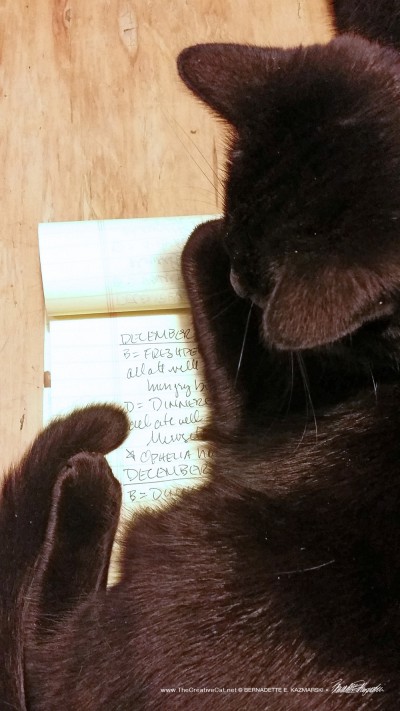 DECEMBER
B = FRESHPE
all ate well
hungry b
D = DINNER
all ate well
* OPHELIA h
DECEMBER
B = D
www.TheCreativeCat.net © BERNADETTE E. KAZMARSKI